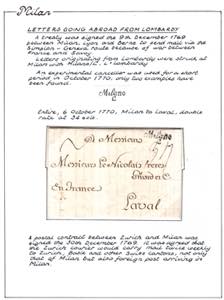 Milan
LETTERS GOING ABROAD FROM LOMBARDY
A treaty was signed the 9th December 1769
between Milan, Lyon and Berne to send mail via the
Simplon - Geneva route because of war between
France and Savoy
Letters originating from Lombardy were struck at
Milan with Milano/L. Lombardy
An experimental canceller was used for a short
period in October 1770, only two examples have
been found.
Milano
Entire, 6 October 1770, Milan to Laval, double
rate at 34 sols.
Milano
A Messieurs
Messieurs
freres
En France
Laval
A postal contract between Zurich and Milan was
signed the 30th December 1769. It was agreed that
the Zurich courier would carry mail twice weekly
to Zurich, Basle and other Swiss cantons, not only
that of Milan but also foreign post arriving in
Milan.